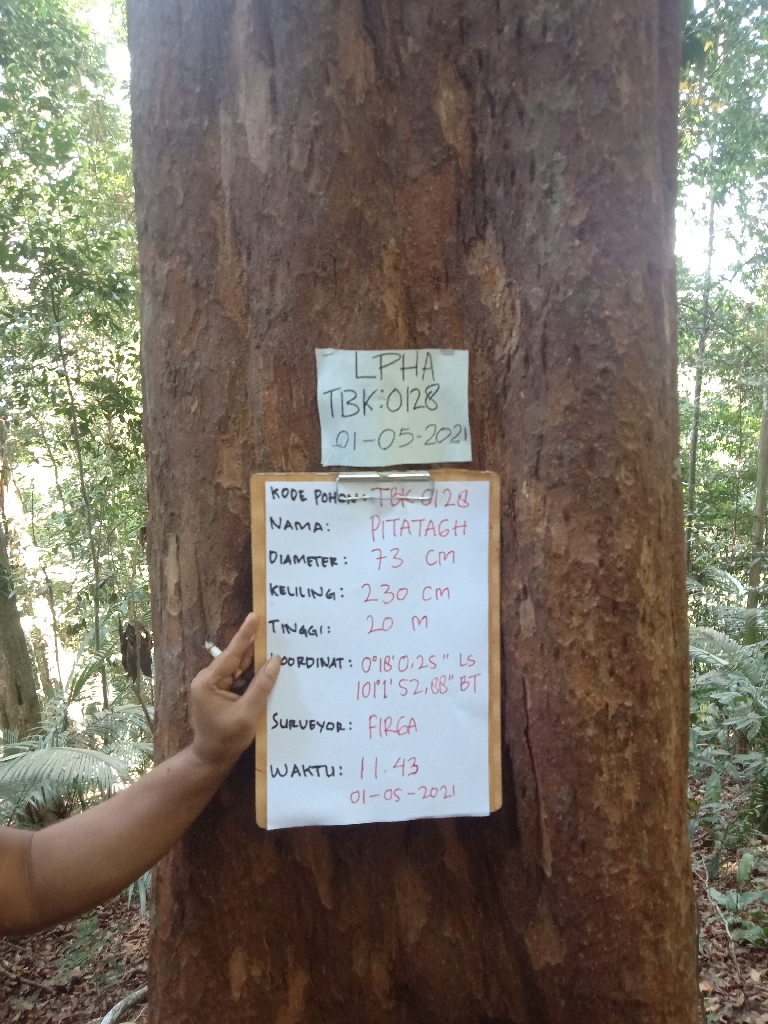 LPHA
TBK:0128
01-05-2021
KODE POHON: TBK 0128
NAMA: PITATAGH
DIAMETER: 73 CM
KELILING: 230 CM
TINGGI: 20 M
KOORDINAT: 0°18'0,25" LS
101°1'52,88" BT
SURVEYOR: FIRGA
WAKTU: 11.43
01-05-2021